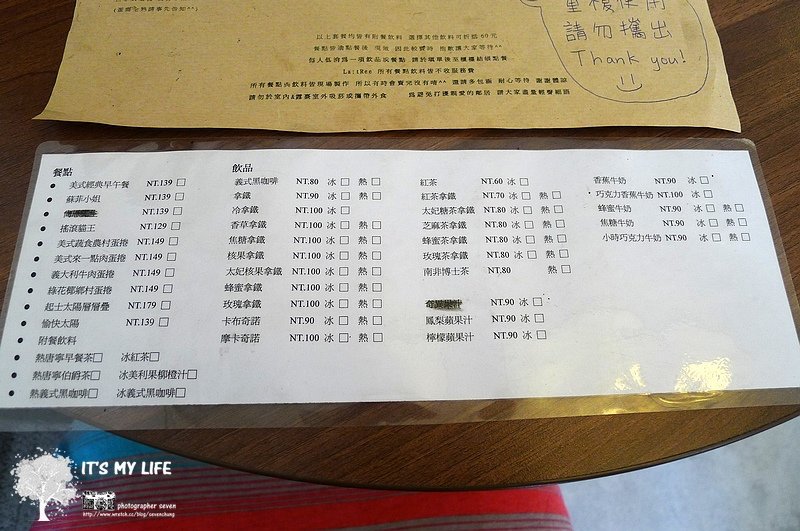 (蛋需全熟請事先告知^^)
以上套餐均皆有附餐飲料 選擇其他飲料可折抵60元
餐點皆為點餐後 現做 因此較費時 抱歉讓大家等待^^
每人低消為一項飲品或餐點 請於填單後至櫃檯結帳點餐
La:tRee 所有餐點飲料皆不收服務費
所有餐點肉飲料皆現場製作 所以有時會賣完沒有唷^^ 還請多包涵 耐心等待 謝謝體諒
請勿於室內&露臺室外吸菸或攜帶外食 為避免打擾親愛的鄰居 請大家盡量輕聲細語
重複使用
請勿攜出
Thank you!
餐點
美式經典早午餐 NT.139 □
蘇菲小姐 NT.139 □
NT.139 □
搖滾貓王 NT.129 □
美式蔬食農村蛋捲 NT.149 □
美式來一點肉蛋捲 NT.149 □
義大利牛肉蛋捲 NT.149 □
綠花椰鄉村蛋捲 NT.149 □
起士太陽層層疊 NT.179 □
愉快太陽 NT.139 □
附餐飲料
熱唐寧早餐茶□ 冰紅茶□
熱唐寧伯爵茶□ 冰美利果柳橙汁□
熱義式黑咖啡□ 冰義式黑咖啡□
飲品
義式黑咖啡 NT.80 冰 □ 熱 □
拿鐵 NT.90 冰 □ 熱 □
冷拿鐵 NT.100 冰 □
香草拿鐵 NT.100 冰 □ 熱 □
焦糖拿鐵 NT.100 冰 □ 熱 □
核果拿鐵 NT.100 冰 □ 熱 □
太妃核果拿鐵 NT.100 冰 □ 熱 □
蜂蜜拿鐵 NT.100 冰 □ 熱 □
玫瑰拿鐵 NT.100 冰 □ 熱 □
卡布奇諾 NT.90 冰 □ 熱 □
摩卡奇諾 NT.100 冰 □ 熱 □
紅茶 NT.60 冰 □
紅茶拿鐵 NT.70 冰 □ 熱 □
太妃糖茶拿鐵 NT.80 冰 □ 熱 □
芝麻茶拿鐵 NT.80 冰 □ 熱 □
蜂蜜茶拿鐵 NT.80 冰 □ 熱 □
玫瑰茶拿鐵 NT.80 冰 □ 熱 □
南非博士茶 NT.80 熱 □
NT.90 冰 □
鳳梨蘋果汁 NT.90 冰 □
檸檬蘋果汁 NT.90 冰 □
香蕉牛奶 NT.90 冰 □
巧克力香蕉牛奶 NT.100 冰 □
蜂蜜牛奶 NT.90 冰 □ 熱 □
焦糖牛奶 NT.90 冰 □ 熱 □
小時巧克力牛奶 NT.90 冰 □ 熱 □
IT'S MY LIFE
photographer seven
http://www.wretch.cc/blog/sevenchung